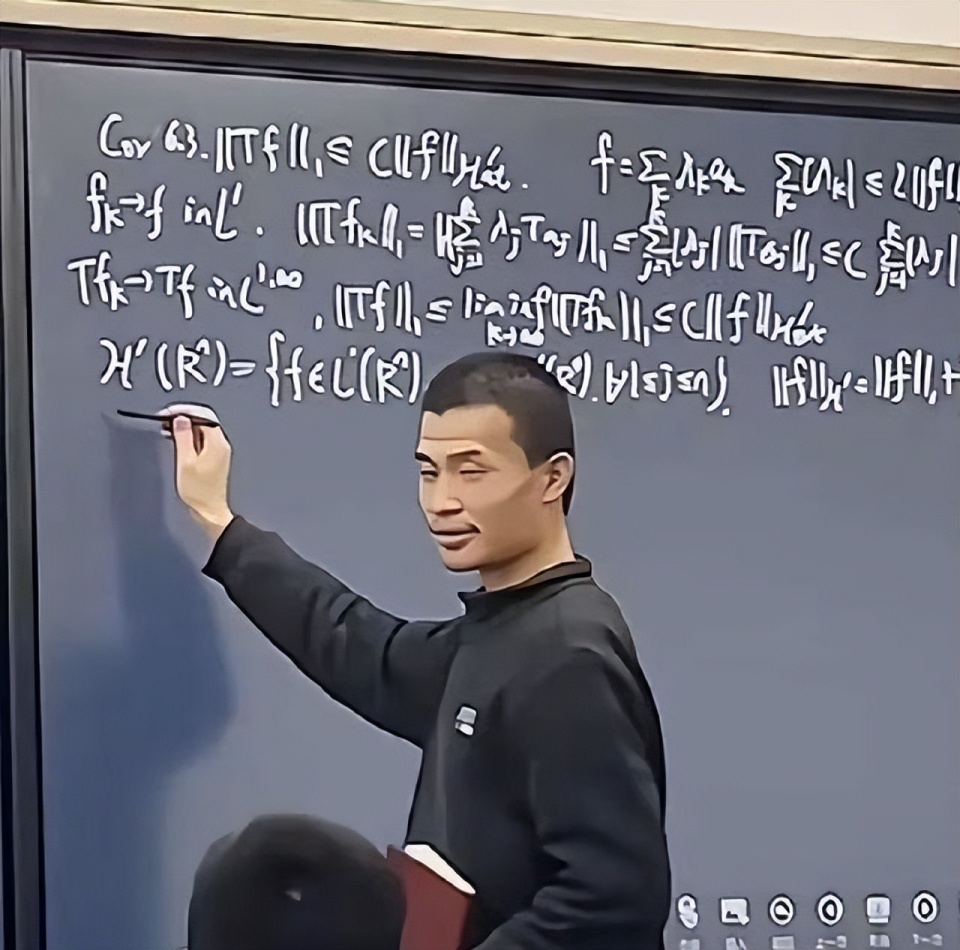 Cor 6.3. ||Tf||₁ ≤ C||f||_{H¹at}. f = Σ_k λ_k a_k Σ_k |λ_k| ≤ 2||f||
f_k → f in L¹. ||Tf_k||₁ = ||Σ_{j=1}^k λ_j Ta_j||₁ ≤ Σ_{j=1}^k |λ_j| ||Ta_j||₁ ≤ C Σ_{j=1}^k |λ_j|
Tf_k → Tf in L^{1,∞}, ||Tf||₁ ≤ lim inf_{k→∞} ||Tf_k||₁ ≤ C||f||_{H¹at}
H¹(Rⁿ) = {f ∈ L¹(Rⁿ) (Rⁿ). ∀ 1 ≤ j ≤ n}. ||f||_{H¹} = ||f||₁ +